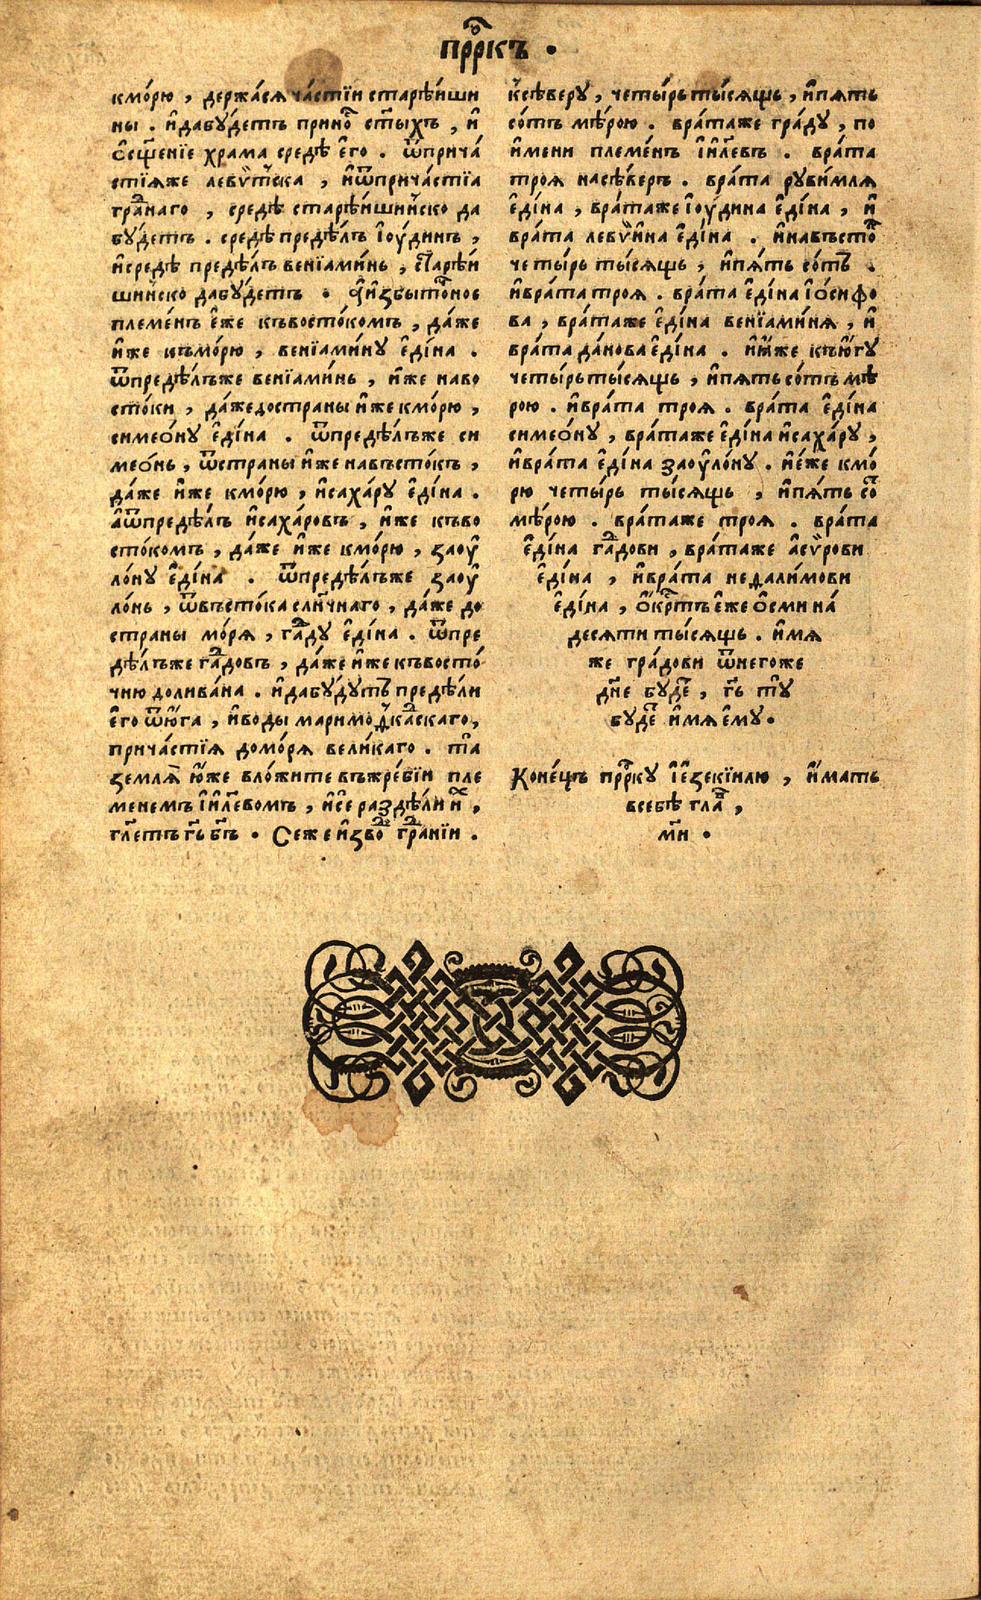 прⷪ҇ркъ •
кмо́рю , держа́сѧ ча́стїи старѣ́иши
ны . и҆дабу́детъ приноⷭ҇ ст҃ыхъ , и҆
ѡ҆сщ҃енїе храма средѣ є҆го . ѿприча́
стїѧже левѵ́тска , и҆ѿприча́стїа
граⷣнаго , средѣ старѣ́ишиньско да
бу́детъ . средѣ предѣ́лъ і҆оу́динъ ,
и҆средѣ предѣ́лъ венїами́нь , старѣ́и
шиньско дабу́детъ • А҆и҆збытоⷱ҇ное
племе́нъ є҆же къвосто́комъ , да́же
и҆же къмо́рю , венїами́ну є҆ди́на .
ѿпредѣ́лъже венїами́нь , и҆же наво
сто́ки , да́жедостраны и҆же кмо́рю ,
симео́ну є҆ди́на . ѿпредѣ́лъже си
мео́нь , ѿстраны и҆же навъсто́къ ,
да́же и҆же кмо́рю , и҆саха́ру є҆ди́на .
а҆ѿпредѣ́лъ и҆саха́ровъ , и҆же къво
сто́комъ , да́же и҆же кмо́рю , заоу҆
ло́ну є҆ди́на . ѿпредѣ́лъже заоу҆
ло́нь , ѿвъсто́ка слн҃чнаго , да́же до
страны мо́рѧ , гаⷣду є҆ди́на . ѿпре
дѣ́лъже гаⷣдовъ , да́же и҆же къвосто́
чню долива́на . и҆дабу́дутъ предѣ́ли
є҆го ѿю҆́га , и҆воды маримоⷣкаⷣскаго ,
прича́стїѧ домо́рѧ вели́каго . та
землѧ̀ ю҆́же вложите въжре́бїи пле
менемъ і҆и҃левомъ , и҆се раздѣ́ли и҆̀ ,
гл҃етъ гь҃ бъ҃ • Сеже и҆звоⷣ граⷣнїи .
ксѣ́веру , четы́рьты́сѧщь , и҆пѧть
со́тъ мѣ́рою . врата́же гра́ду , по
и҆мени племе́нъ і҆и҃левъ . врата
троѧ насѣ́веръ . врата руви́млѧ
є҆ди́на , врата́же і҆оу́дина є҆ди́на , и҆
врата левѵ́ина є҆ди́на . и҆навъстоⷦ҇
четы́рь ты́сѧщь , и҆пѧ́ть сотъ .
и҆врата троѧ . врата є҆ди́на і҆о́сифо
ва , врата́же є҆ди́на венїами́нѧ , и҆
врата да́нова є҆ди́на . и҆и҆же къю҆́гу
четы́рьты́сѧщь , и҆пѧть со́тъ мѣ
рою . и҆врата троѧ . врата є҆ди́на
симео́ну , врата́же є҆ди́на и҆саха́ру ,
и҆врата є҆ди́на заоу҆ло́ну . и҆е́же кмо́
рю четы́рь ты́сѧщь , и҆пѧ́ть соⷮ
мѣ́рою . врата́же троѧ . врата
є҆ди́на гаⷣдови , врата́же а҆сѵ́рови
є҆ди́на , и҆врата недали́мови
є҆ди́на , ѻ҆́крⷭ҇тъ є҆же ѻ҆сми на́
десѧти ты́сѧщь . и҆мѧ
же гра́дови ѿнегоже
дн҃е будеⷮ , гь҃ ту
будеⷮ и҆мѧ є҆му •
Коне́цъ прⷪ҇рку і҆е҆зекїилю , и҆́мать
всебѣ глаⷡ҇ ,
м҃и •